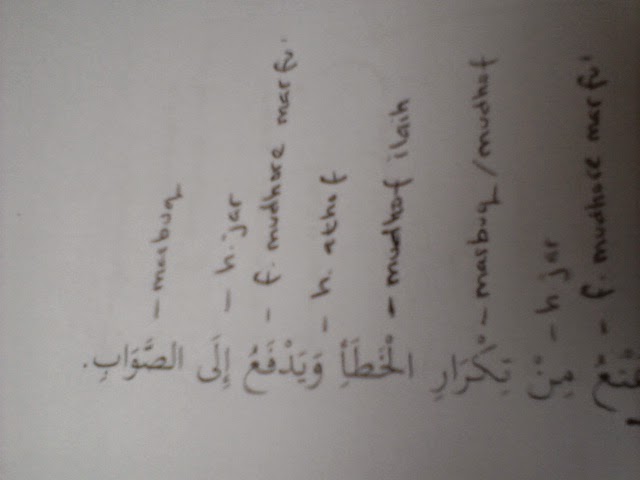 مِنْ تِكْرَارِ الْخَطَأِ وَيَدْفَعُ إِلَى الصَّوَابِ.
- f. mudhore marfu'
- h jar
- masbuq/mudhof
- mudhof ilaih
- h. athof
- f. mudhore marfu'
- h. jar
- masbuq